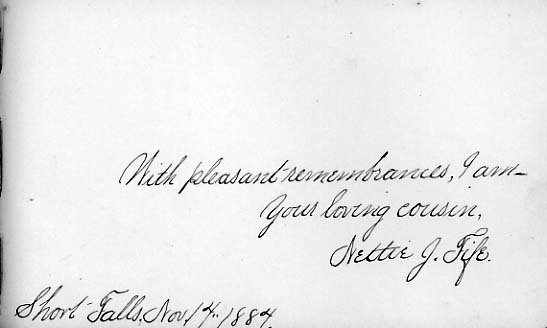 With pleasant remembrances, I am–
Your loving cousin,
Nettie J. Fife.
Short Falls, Nov. 14. 1884.